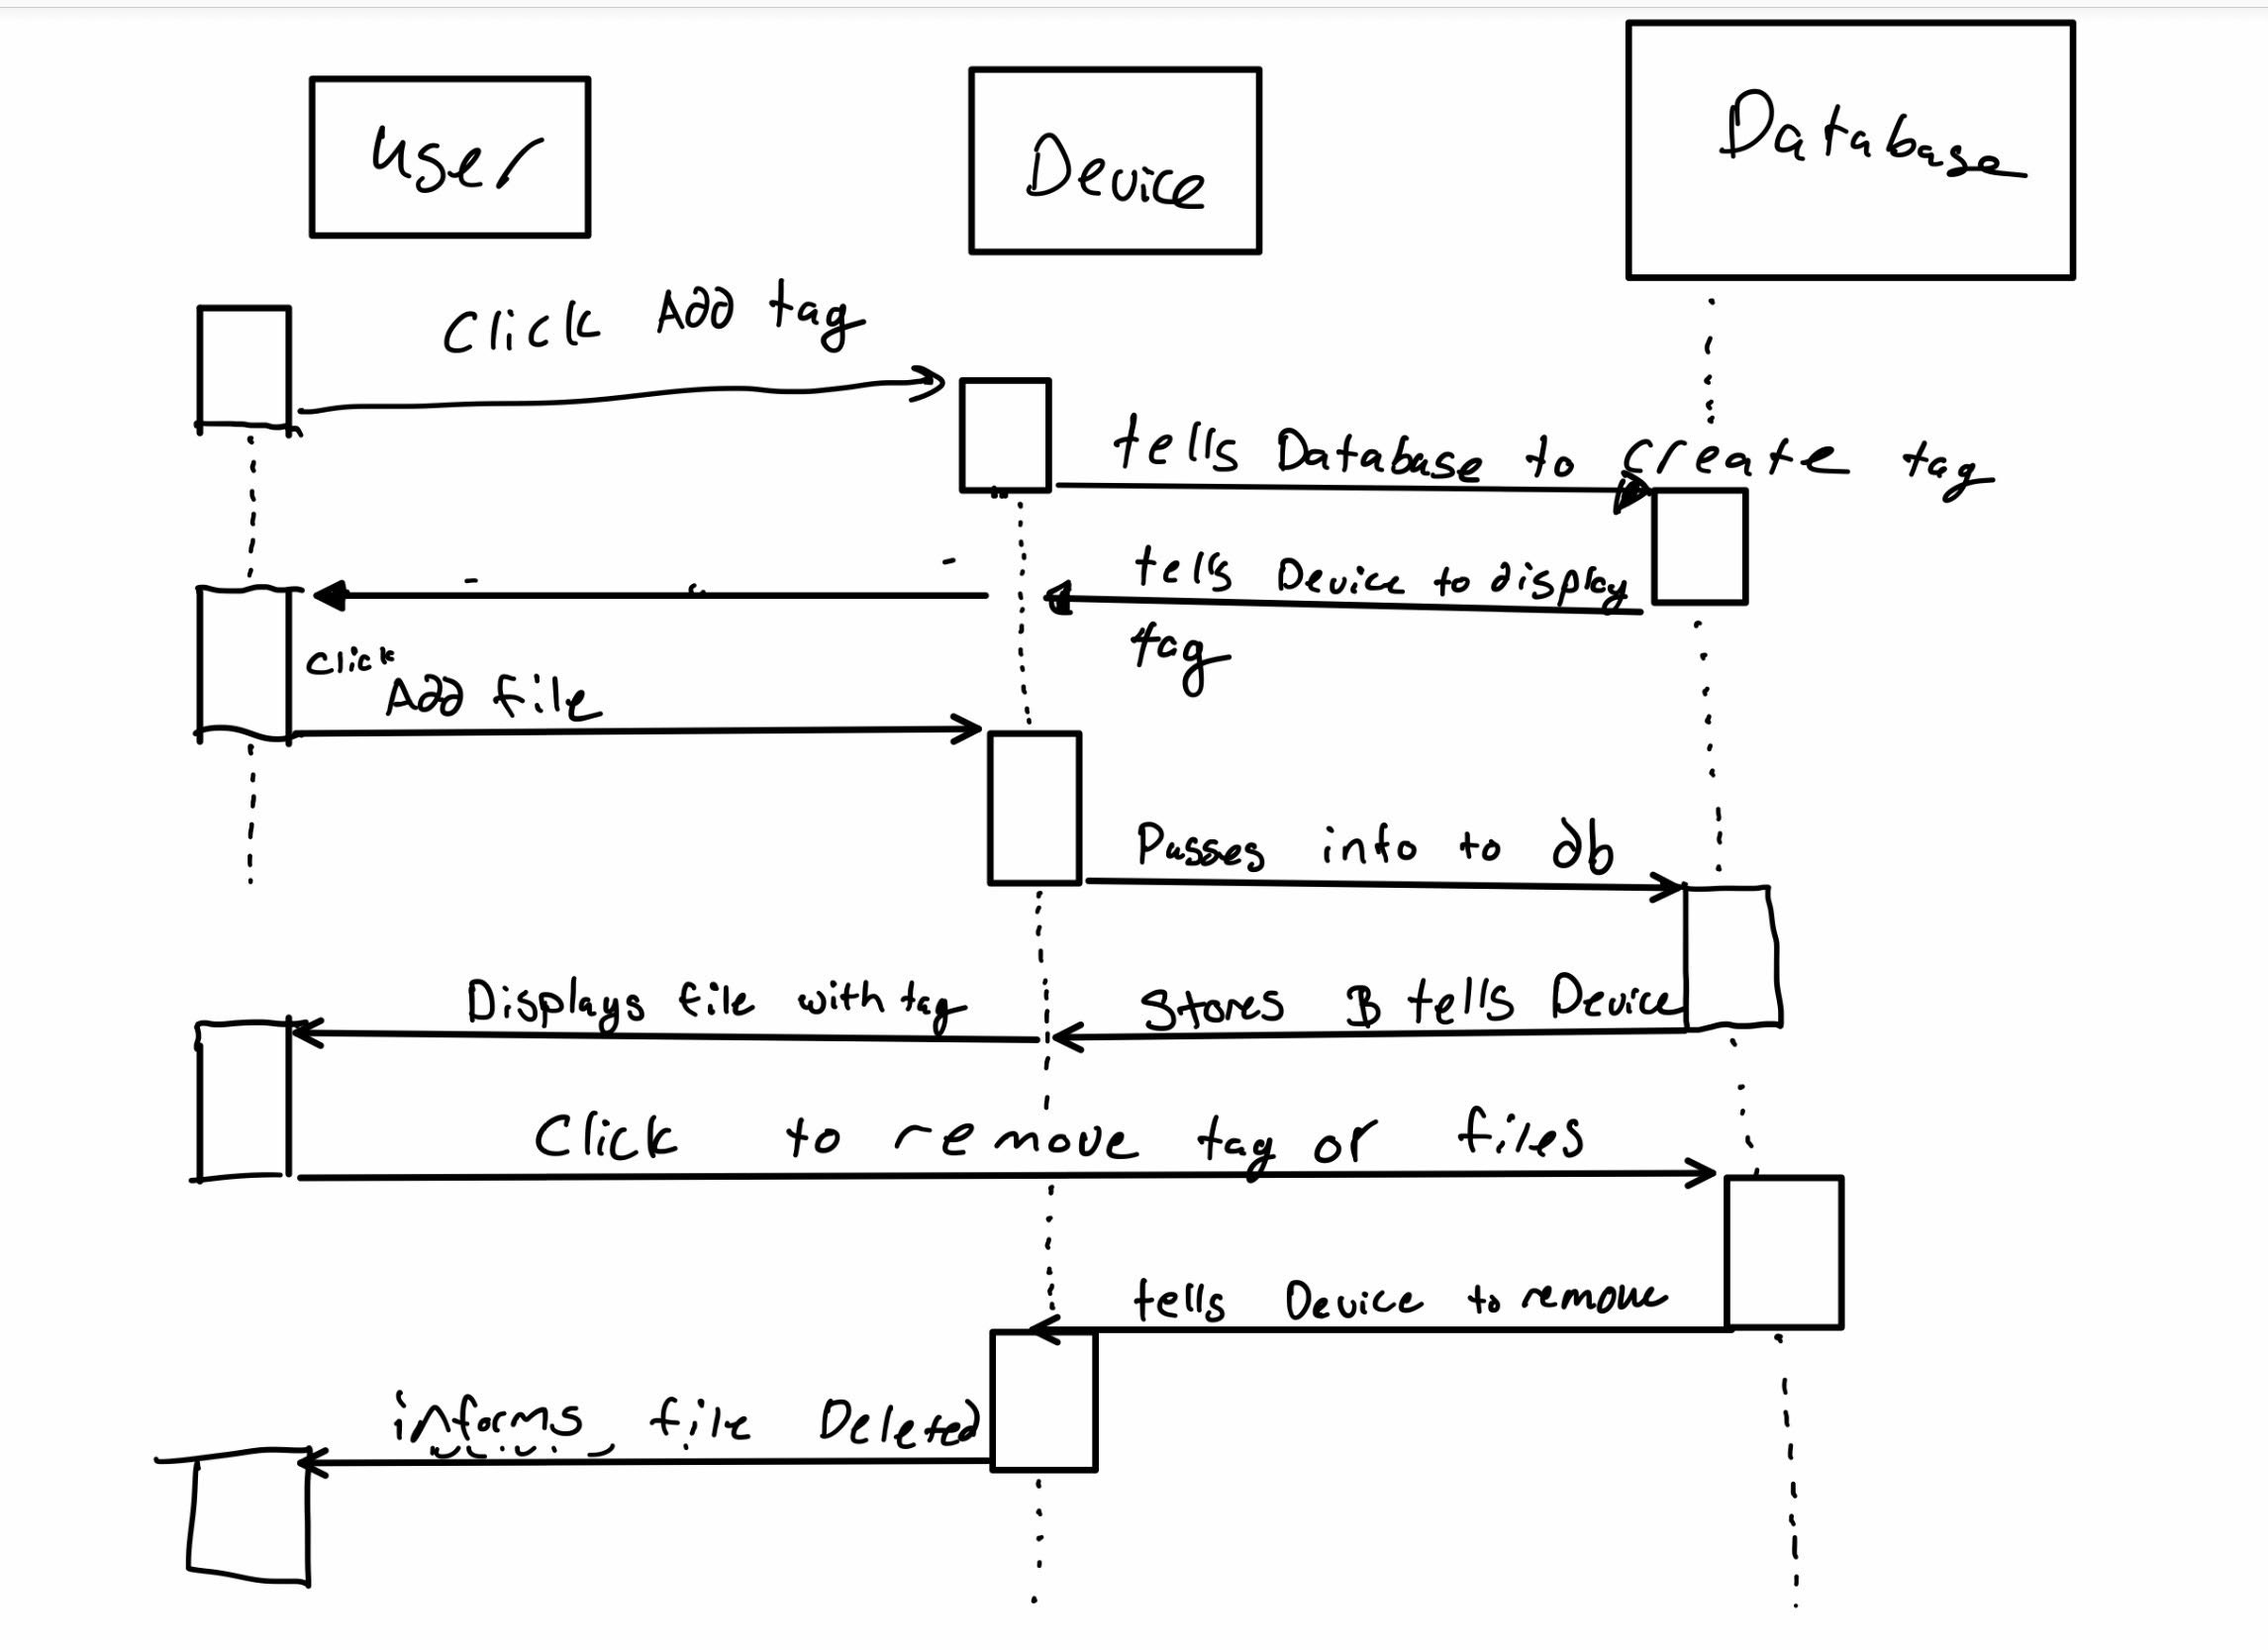 User
Device
Database
Click Add tag
tells Database to create tag
tells Device to display
tag
click
Add file
Passes info to db
Displays file with tag
Stores & tells Device
Click to remove tag or files
tells Device to remove
informs file Deleted